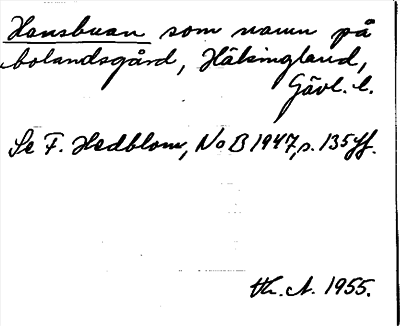 Hansbuan som namn på
bolandsgård, Hälsingland,
Gävl. l.
Se F. Hedblom, NoB 1947, s. 135 ff.
Th. A. 1955.